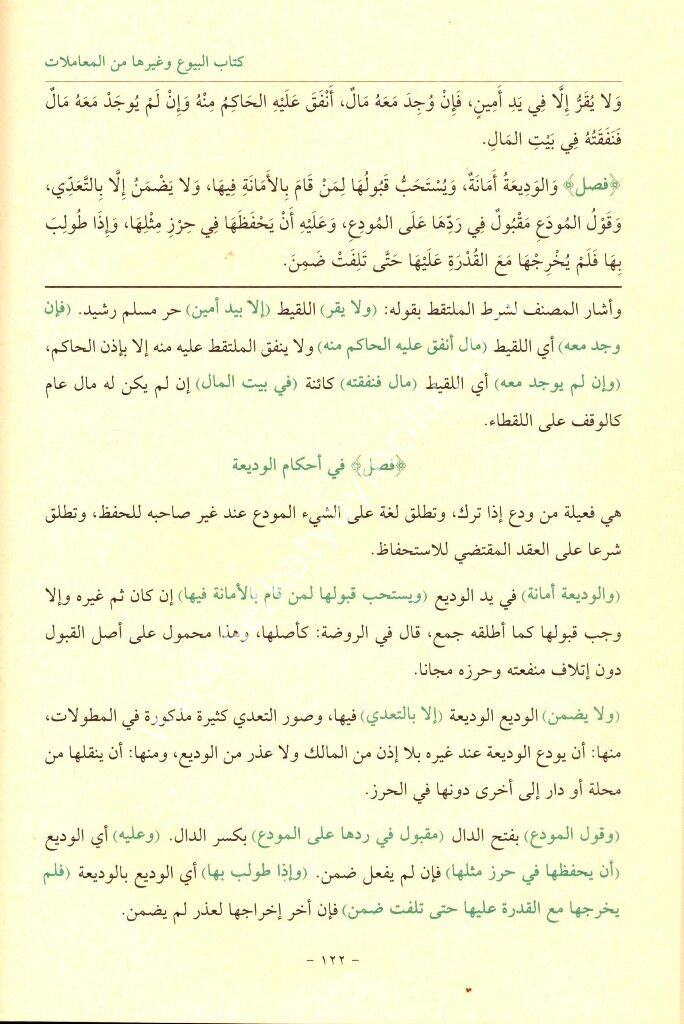 كتاب البيوع وغيرها من المعاملات
وَلا يُقَرُّ إِلَّا فِي يَدِ أَمِينٍ، فَإِنْ وُجِدَ مَعَهُ مَالٌ، أَنْفَقَ عَلَيْهِ الحَاكِمُ مِنْهُ وَإِنْ لَمْ يُوجَدْ مَعَهُ مَالٌ
فَنَفَقَتُهُ فِي بَيْتِ المَالِ.
﴿فصل﴾ وَالوَدِيعَةُ أَمَانَةٌ، وَيُسْتَحَبُّ قَبُولُهَا لِمَنْ قَامَ بِالأَمَانَةِ فِيهَا، وَلا يَضْمَنُ إِلَّا بِالتَّعَدِّي،
وَقَوْلُ المُودَعِ مَقْبُولٌ فِي رَدِّهَا عَلَى المُودِعِ، وَعَلَيْهِ أَنْ يَحْفَظَهَا فِي حِرْزِ مِثْلِهَا، وَإِذَا طُولِبَ
بِهَا فَلَمْ يُخْرِجْهَا مَعَ القُدْرَةِ عَلَيْهَا حَتَّى تَلِفَتْ ضَمِنَ.
وأشار المصنف لشرط الملتقط بقوله: (ولا يقر) اللقيط (إلا بيد أمين) حر مسلم رشيد. (فإن
وجد معه) أي اللقيط (مال أنفق عليه الحاكم منه) ولا ينفق الملتقط عليه منه إلا بإذن الحاكم،
(وإن لم يوجد معه) أي اللقيط (مال فنفقته) كائنة (في بيت المال) إن لم يكن له مال عام
كالوقف على اللقطاء.
﴿فصل﴾ في أحكام الوديعة
هي فعيلة من ودع إذا ترك، وتطلق لغة على الشيء المودع عند غير صاحبه للحفظ، وتطلق
شرعا على العقد المقتضي للاستحفاظ.
(والوديعة أمانة) في يد الوديع (ويستحب قبولها لمن قام بالأمانة فيها) إن كان ثم غيره وإلا
وجب قبولها كما أطلقه جمع، قال في الروضة: كأصلها، وهذا محمول على أصل القبول
دون إتلاف منفعته وحرزه مجانا.
(ولا يضمن) الوديع الوديعة (إلا بالتعدي) فيها، وصور التعدي كثيرة مذكورة في المطولات،
منها: أن يودع الوديعة عند غيره بلا إذن من المالك ولا عذر من الوديع، ومنها: أن ينقلها من
محلة أو دار إلى أخرى دونها في الحرز.
(وقول المودع) بفتح الدال (مقبول في ردها على المودع) بكسر الدال. (وعليه) أي الوديع
(أن يحفظها في حرز مثلها) فإن لم يفعل ضمن. (وإذا طولب بها) أي الوديع بالوديعة (فلم
يخرجها مع القدرة عليها حتى تلفت ضمن) فإن أخر إخراجها لعذر لم يضمن.
- ١٢٢ -